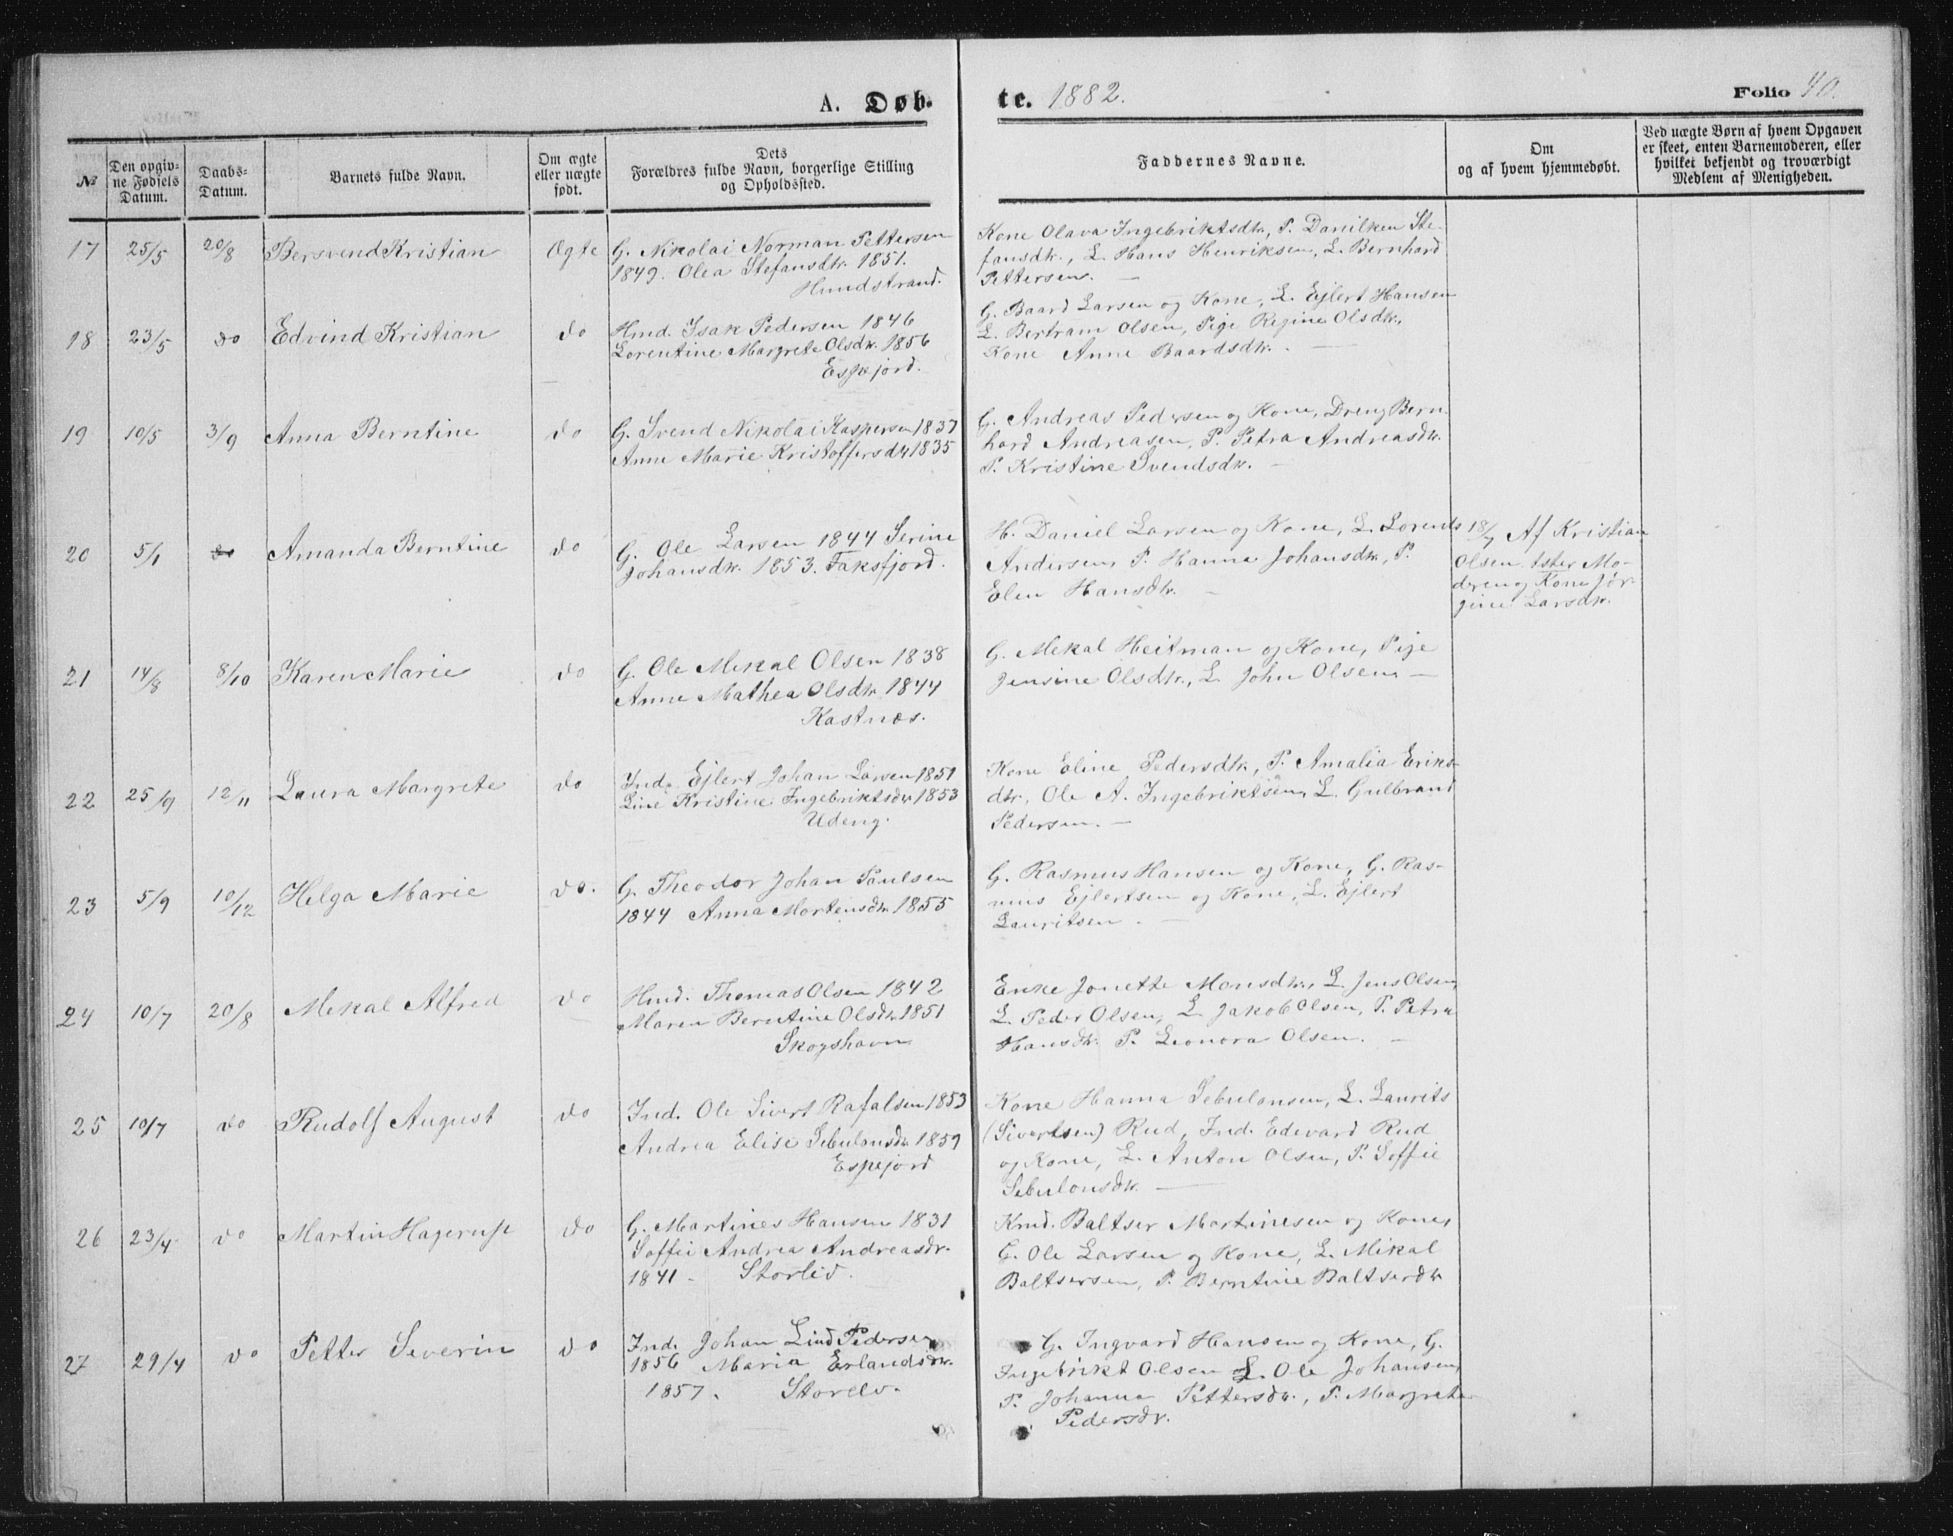 A. Døbte. 1882.
Folio 40.
№
Den opgivne Fødsels Datum.
Daabs-Datum.
Barnets fulde Navn.
Om ægte eller uægte født.
Dets Forældres fulde Navn, borgerlige Stilling og Opholdssted.
Faddernes Navne.
Om og af hvem hjemmedøbt.
Ved uægte Børn af hvem Opgaven er skeet, enten Barnemoderen, eller hvilket bekjendt og troværdigt Medlem af Menigheden.
17 25/5 20/8 Bersvend Kristian Ogte
G. Nikolai Norman Pettersen
1849. Olea Stefansdtr. 1851.
Hundstrand.
Kone Olava Ingebriktsdtr, P. Danilken Ste-
fansdtr., L. Hans Henriksen, L. Bernhard
Pettersen. —
18 23/5 do Edvind Kristian do
Hmd. Isak Pedersen 1846
Lorentine Margrete Olsdtr. 1856
Espejord.
G. Baard Larsen og Kone, L. Ejlert Hansen
L. Bertram Olsen, Pige Regine Olsdtr,
Kone Anne Baardsdtr. —
19 10/5 3/9 Anna Berntine do
G. Svend Nikolai Kaspersen 1837
Anne Marie Kristoffersdtr 1835
G. Andreas Pedersen og Kone, Dreng Bern-
hard Andreasen, P. Petra Andreasdtr.
P. Kristine Svendsdtr. —
20 5/1 do Amanda Berntine do
G. Ole Larsen 1844 Serine
Johansdtr. 1853. Faksfjord.
H. Daniel Larsen og Kone, L. Lorents
Andersen, P. Hanna Johansdtr, P.
Elen Hansdtr. —
18/7 Af Kristian
Olsen tster Mo-
deren og Kone Jør-
gine Larsdtr.
21 14/8 8/10 Karen Marie do
G. Ole Mekal Olsen 1838
Anne Mathea Olsdtr 1844
Kastnæs.
G. Mekal Heitman og Kone, Pige
Jensine Olsdtr., L. John Olsen. —
22 25/9 12/11 Laura Margrete do
Ind. Ejlert Johan Larsen 1851
Line Kristine Ingebriktsdtr 1853
Udeng.
Kone Eline Pedersdtr, P. Amalia Eriks-
dtr, Ole A. Ingebriktsen, L. Gulbrand
Pedersen. —
23 5/9 10/12 Helga Marie do.
G. Theodor Johan Paulsen
1844 Anna Mortensdtr 1855
G. Rasmus Hansen og Kone, G. Ras-
mus Ejlertsen og Kone, L. Ejlert
Lauritsen. —
24 10/7 20/8 Mekal Alfred do
Hmd. Thomas Olsen 1842
Maren Berntine Olsdtr 1851
Skogshavn
Enke Jonette Monsdtr, L. Jens Olsen,
L. Peder Olsen, L. Jakob Olsen, P. Petra
Hansdtr. P. Leonora Olsen. —
25 10/7 do Rudolf August do
Ind. Ole Sivert Rafalsen 1853
Andrea Elise Sebulonsdtr 1859
Espejord
Kone Hanna Sebulonsen, L. Laurits
(Sivertsen) Rud, Ind. Edevard Rud
og Kone, L. Anton Olsen, P. Soffie
Sebulonsdtr. —
26 23/4 do Martin Hagerup do
G. Martines Hansen 1831
Soffie Andrea Andreasdtr.
1841 - Storlid.
Kmd. Baltser Martinesen og Kone,
G. Ole Larsen og Kone, L. Mikal
Baltsersen, P. Berntine Baltserdtr
27 29/4 do Petter Severin do
Ind. Johan Lind Pedersen
1856 Maria Erlandsdtr.
1857. Storelv.
G. Ingvard Hansen og Kone, G.
Ingebrikt Olsen L. Ole Johansen,
P. Johanna Pettersdtr., P. Margrete
Pedersdtr.